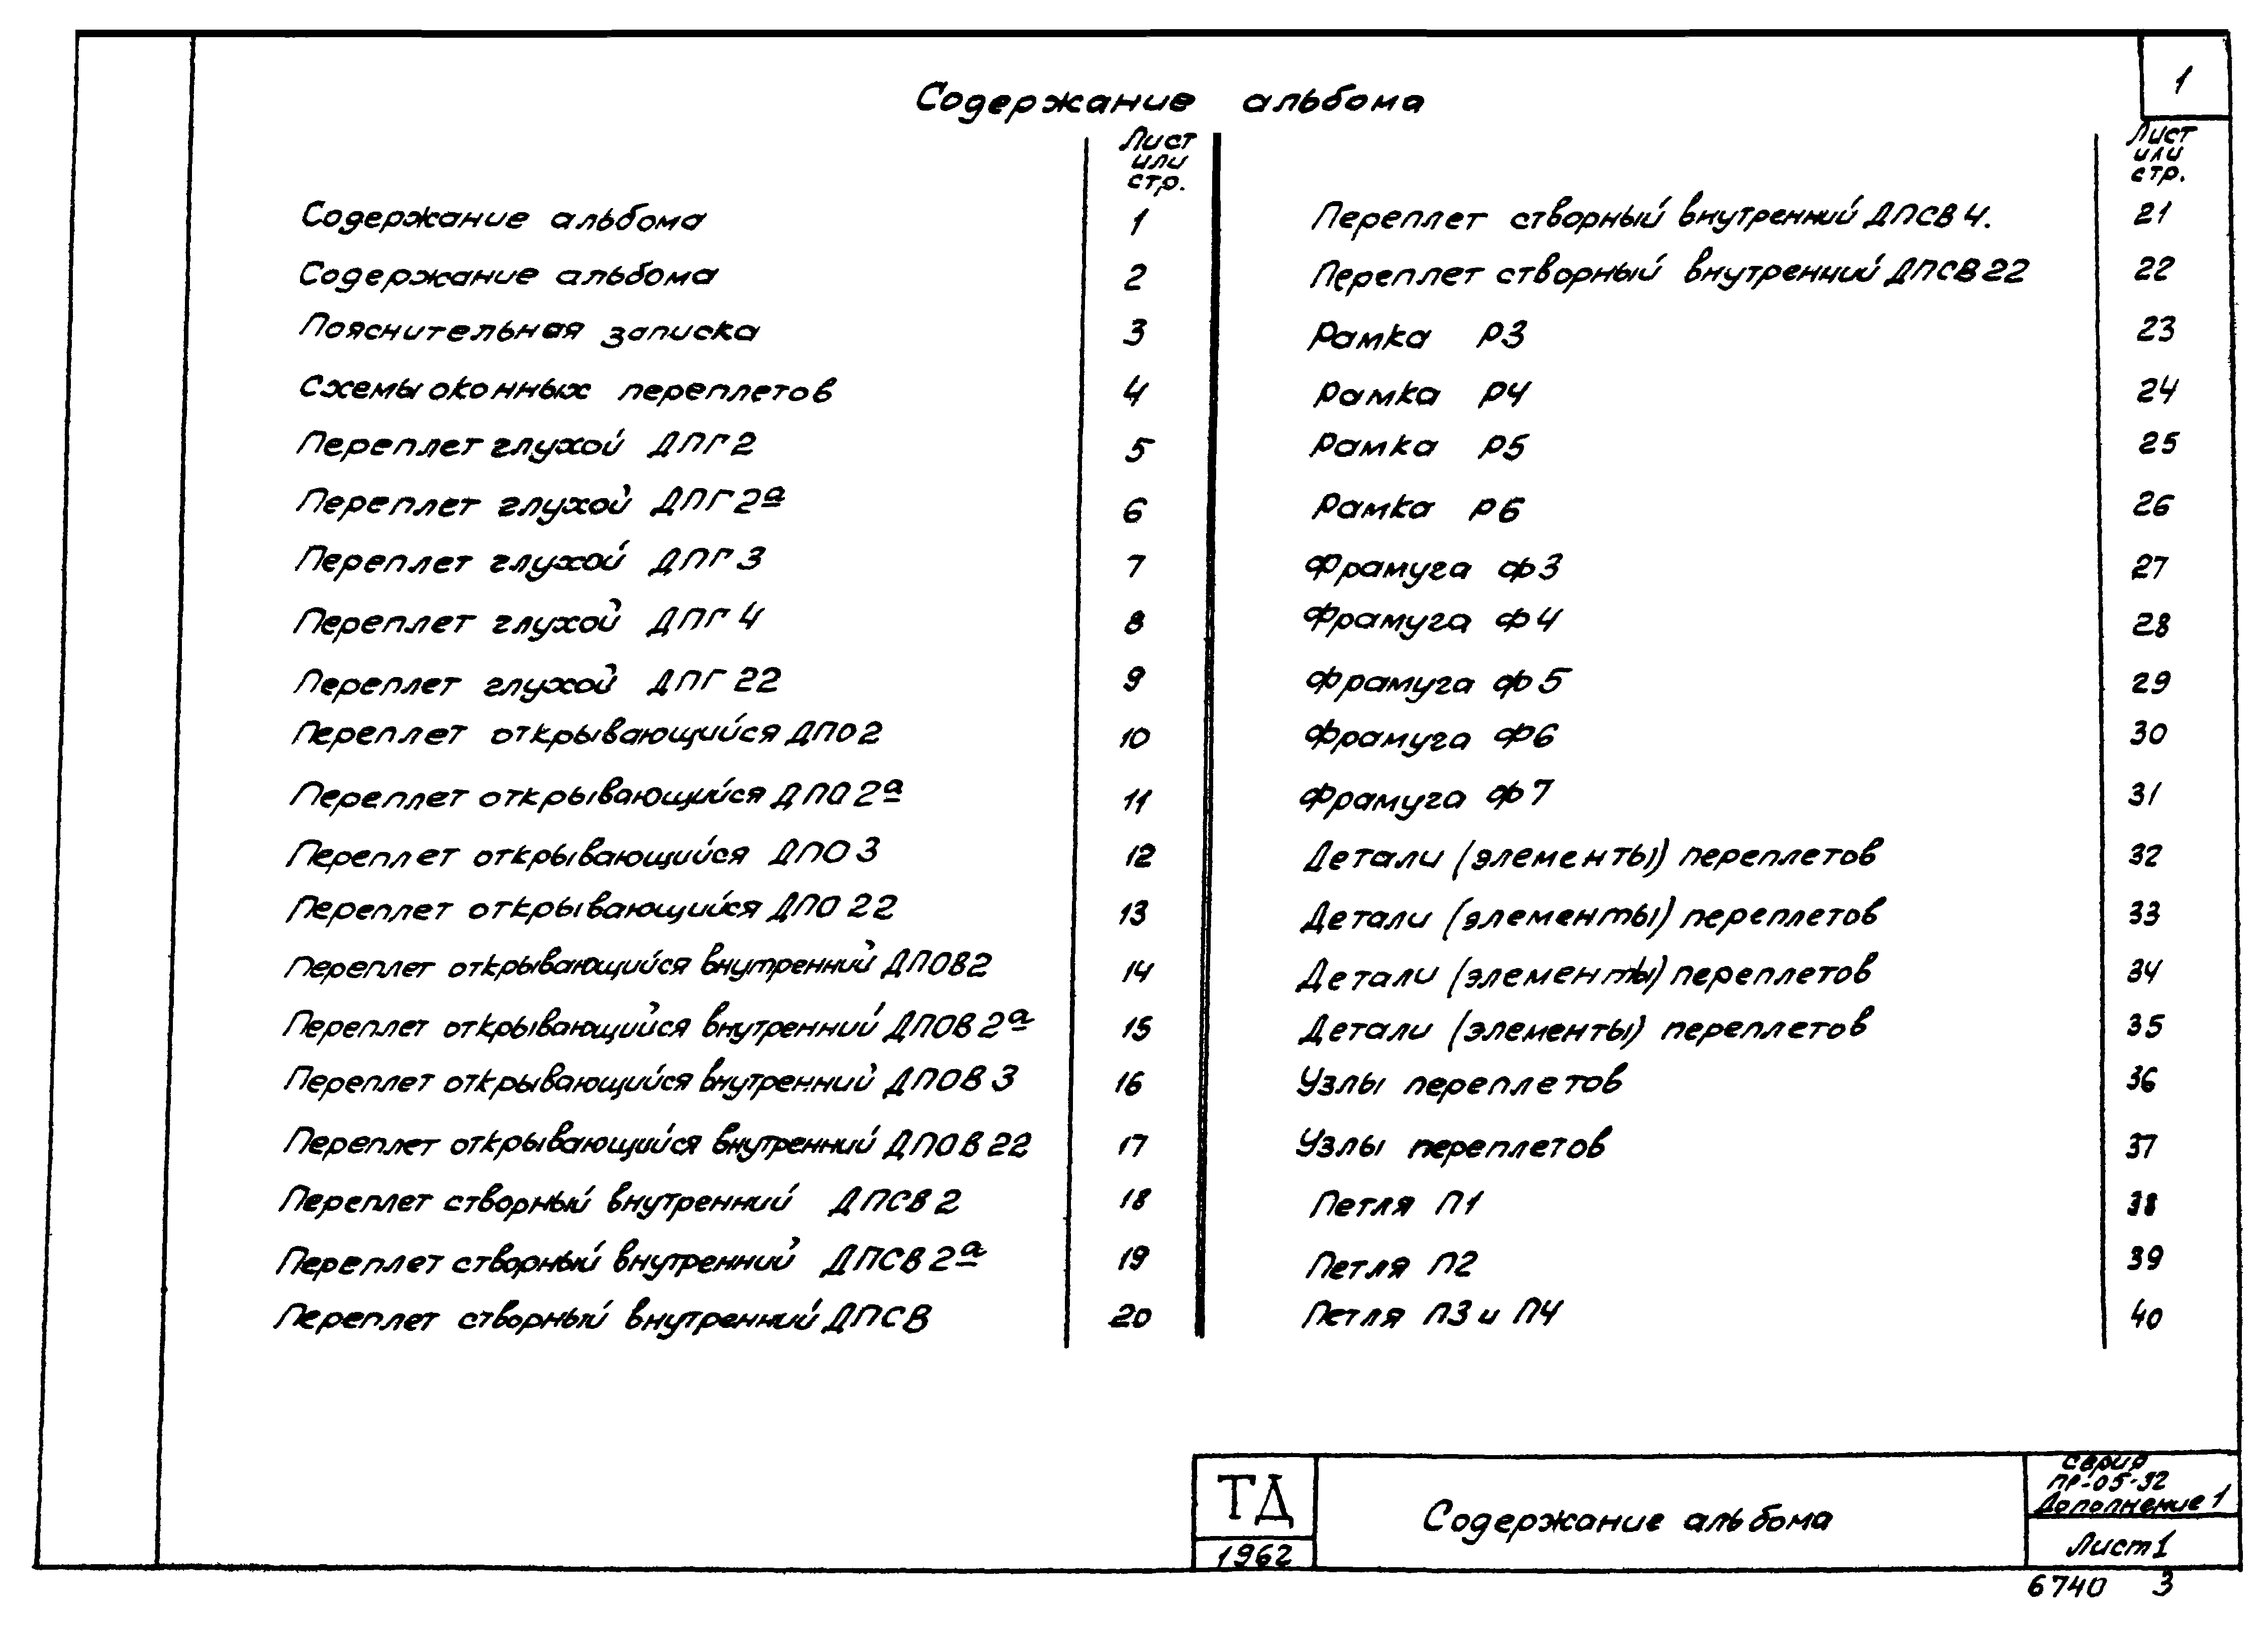 1
Содержание альбома
Лист
или
стр.
Содержание альбома 1
Содержание альбома 2
Пояснительная записка 3
Схемы оконных переплетов 4
Переплет глухой ДПГ 2 5
Переплет глухой ДПГ 2а 6
Переплет глухой ДПГ 3 7
Переплет глухой ДПГ 4 8
Переплет глухой ДПГ 22 9
Переплет открывающийся ДПО 2 10
Переплет открывающийся ДПО 2а 11
Переплет открывающийся ДПО 3 12
Переплет открывающийся ДПО 22 13
Переплет открывающийся внутренний ДПОВ 2 14
Переплет открывающийся внутренний ДПОВ 2а 15
Переплет открывающийся внутренний ДПОВ 3 16
Переплет открывающийся внутренний ДПОВ 22 17
Переплет створный внутренний ДПСВ 2 18
Переплет створный внутренний ДПСВ 2а 19
Переплет створный внутренний ДПСВ 20
Лист
или
стр.
Переплет створный внутренний ДПСВ 4. 21
Переплет створный внутренний ДПСВ 22 22
Рамка Р3 23
Рамка Р4 24
Рамка Р5 25
Рамка Р6 26
Фрамуга Ф3 27
Фрамуга Ф4 28
Фрамуга Ф5 29
Фрамуга Ф6 30
Фрамуга Ф7 31
Детали (элементы) переплетов 32
Детали (элементы) переплетов 33
Детали (элементы) переплетов 34
Детали (элементы) переплетов 35
Узлы переплетов 36
Узлы переплетов 37
Петля П1 38
Петля П2 39
Петля П3 и П4 40
ТД
1962
Содержание альбома
Серия
ПР-05-32
Дополнение 1
Лист 1
6740 3